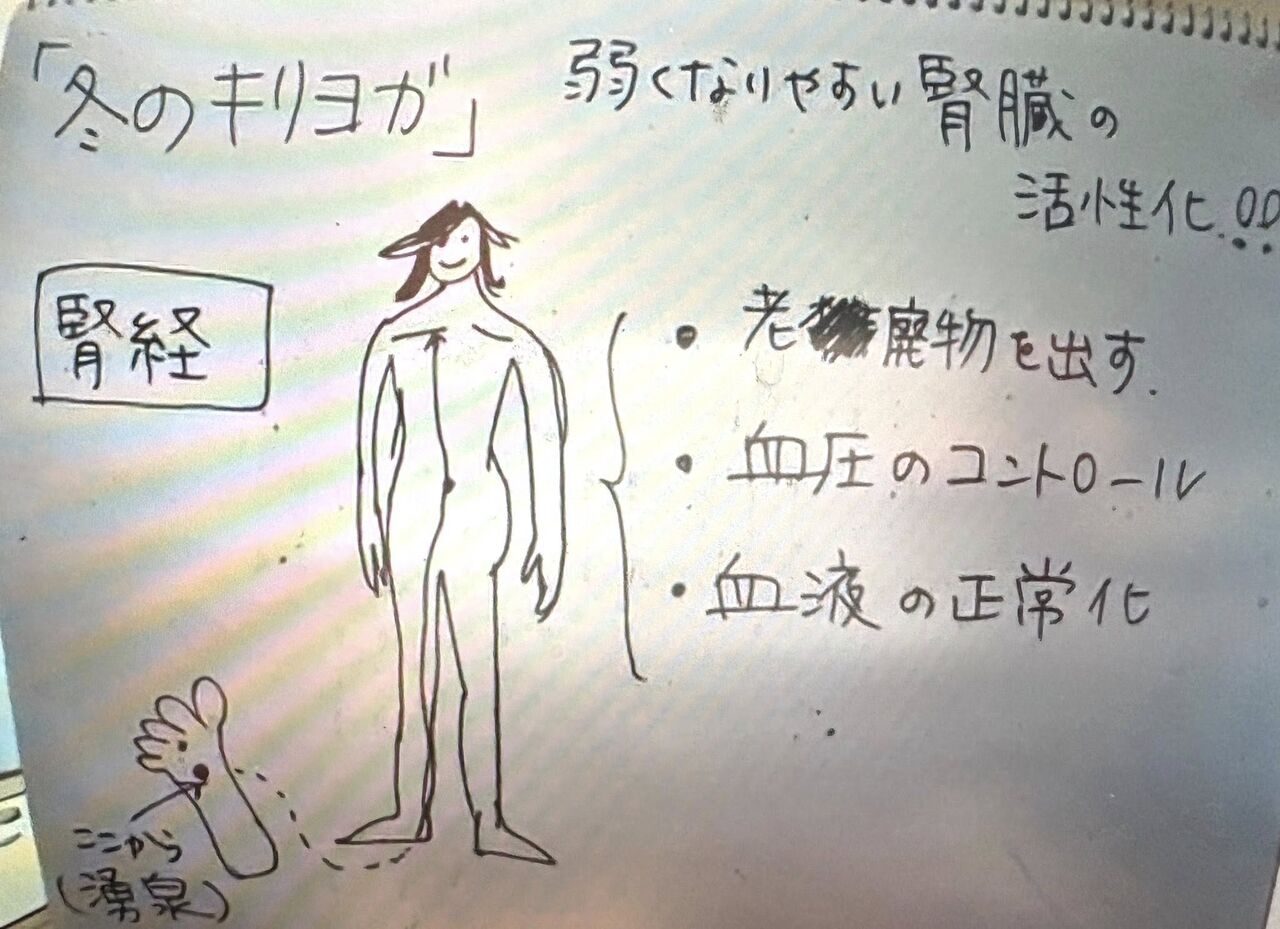 「冬のキリヨガ」
弱くなりやすい腎臓の
活性化!!
腎経
・老廃物を出す.
・血圧のコントロール
・血液の正常化
ここから
(湧泉)